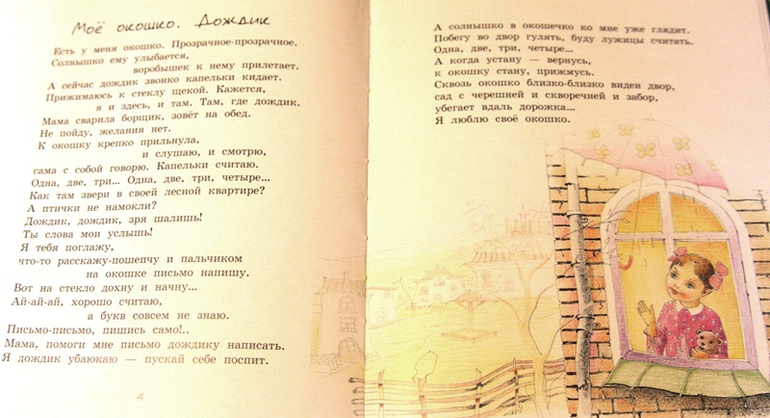 Моё окошко. Дождик
Есть у меня окошко. Прозрачное-прозрачное.
Солнышко ему улыбается,
воробышек к нему прилетает.
А сейчас дождик звонко капельки кидает.
Прижимаюсь к стеклу щекой. Кажется,
я и здесь, и там. Там, где дождик.
Мама сварила борщик, зовёт на обед.
Не пойду, желания нет.
К окошку крепко прильнула,
и слушаю, и смотрю,
сама с собой говорю. Капельки считаю.
Одна, две, три... Одна, две, три, четыре...
Как там звери в своей лесной квартире?
А птички не намокли?
Дождик, дождик, зря шалишь!
Ты слова мои услышь!
Я тебя поглажу,
что-то расскажу-пошепчу и пальчиком
на окошке письмо напишу.
Вот на стекло дохну и начну...
Ай-ай-ай, хорошо считаю,
а букв совсем не знаю.
Письмо-письмо, пишись само!..
Мама, помоги мне письмо дождику написать.
Я дождик убаюкаю — пускай себе поспит.
4
А солнышко в окошечко ко мне уже глядит.
Побегу во двор гулять, буду лужицы считать.
Одна, две, три, четыре...
А когда устану — вернусь,
к окошку стану, прижмусь.
Сквозь окошко близко-близко виден двор,
сад с черешней и скворечней и забор,
убегает вдаль дорожка...
Я люблю своё окошко.